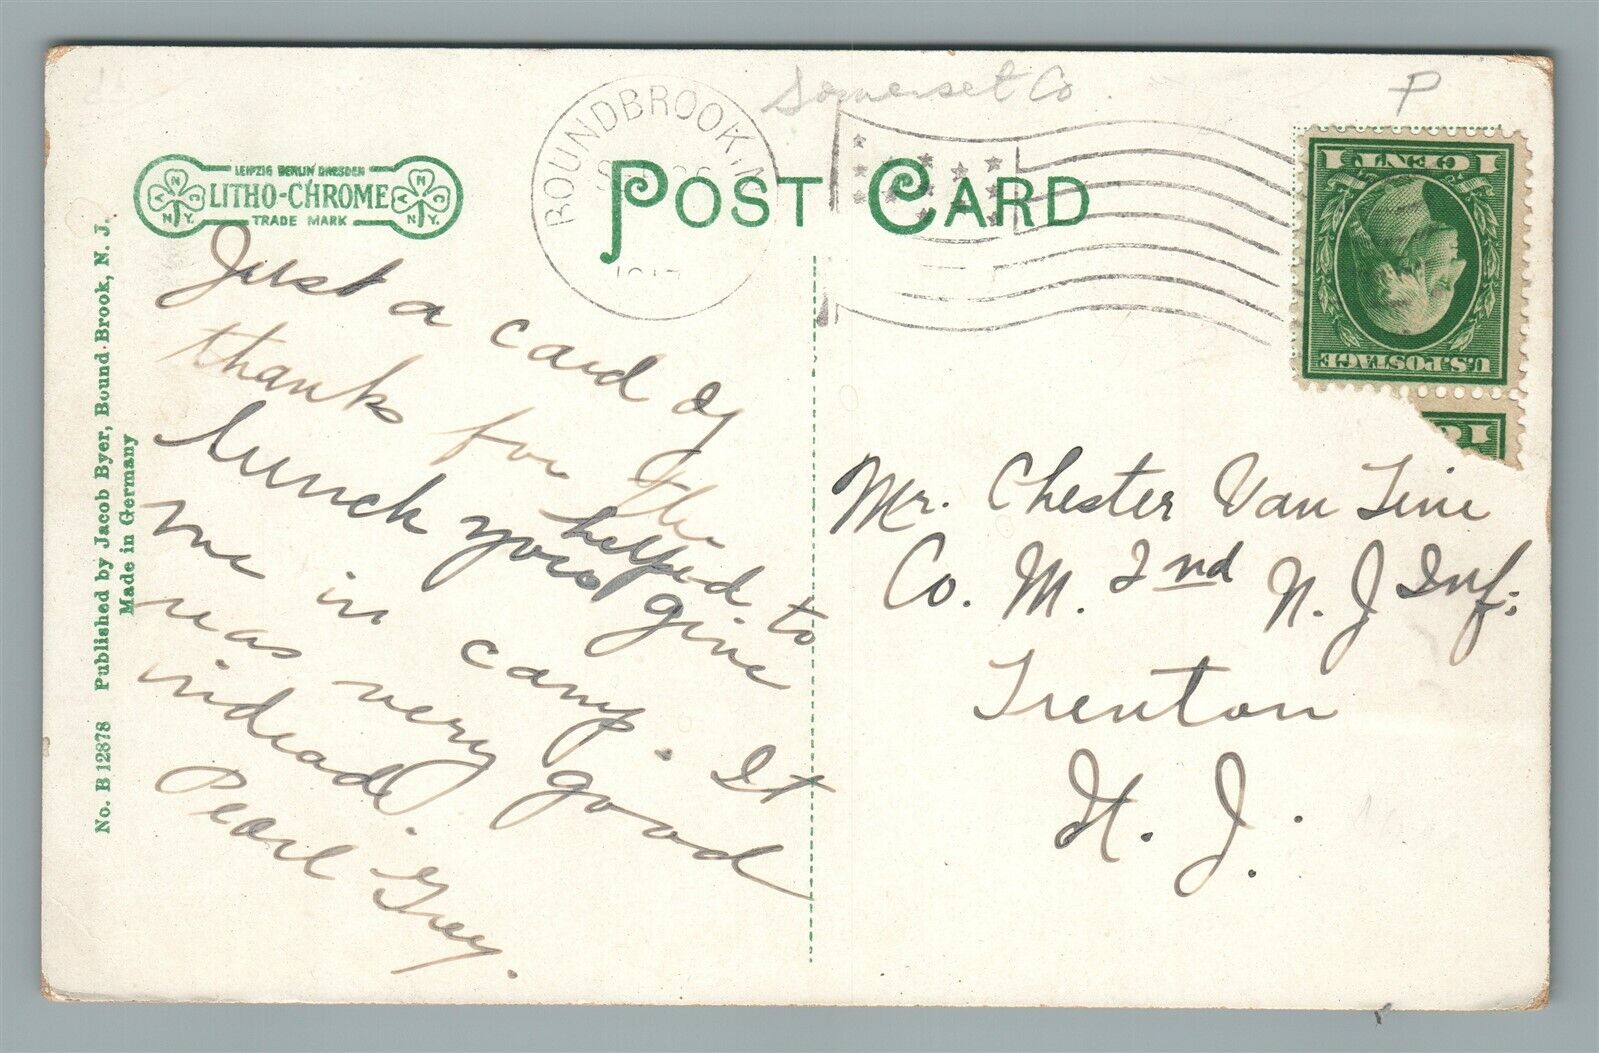 Somerset Co.
P
BOUNDBROOK, N
1917
POST CARD
LEIPZIG BERLIN DRESDEN
LITHO-CHROME
TRADE MARK
No. B 12878 Published by Jacob Byer, Bound Brook, N. J.
Made in Germany
1 CENT 1
U.S. POSTAGE
Just a card of
thanks for the
lunch you helped to
me in yous give
camp. It
was very good
indead.
Pearl Grey.
Mr. Chester Van Tine
Co. M. 2nd N. J Inf:
Trenton
N. J.